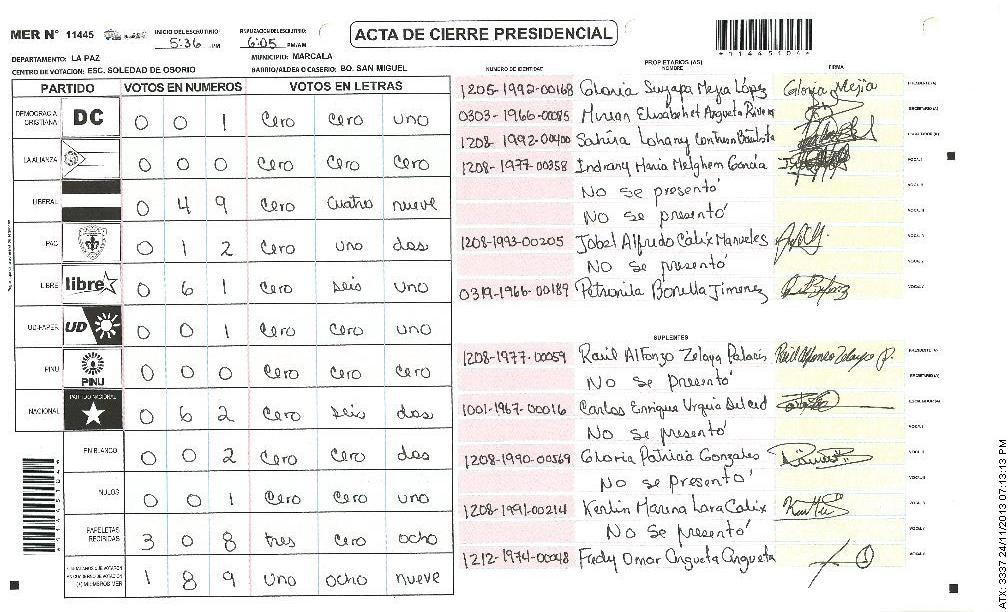 MER N° 11445 INICIO DEL ESCRUTINIO: 5:36 PM FINALIZACION DEL ESCRUTINIO: 6:05 PM/AM
ACTA DE CIERRE PRESIDENCIAL
11445104
DEPARTAMENTO: LA PAZ MUNICIPIO: MARCALA
CENTRO DE VOTACION: ESC. SOLEDAD DE OSORIO BARRIO/ALDEA O CASERIO: BO. SAN MIGUEL
PARTIDO VOTOS EN NUMEROS VOTOS EN LETRAS
DEMOCRACIA CRISTIANA DC 0 0 1 Cero Cero uno
LA ALIANZA 0 0 0 Cero Cero Cero
LIBERAL 0 4 9 Cero Cuatro nueve
PAC 0 1 2 Cero uno dos
LIBRE libre 0 6 1 Cero seis uno
UD-FAPER UD 0 0 1 Cero Cero uno
PINU PINU 0 0 0 Cero Cero Cero
NACIONAL PARTIDO NACIONAL 0 6 2 Cero seis dos
EN BLANCO 0 0 2 Cero Cero dos
NULOS 0 0 1 Cero Cero uno
PAPELETAS RECIBIDAS 3 0 8 tres cero ocho
CIUDADANOS QUE VOTARON
(+) MIEMBROS MER 1 8 9 uno ocho nueve
PROPIETARIOS (AS)
NUMERO DE IDENTIDAD NOMBRE FIRMA
1205-1992-00168 Gloria Suyapa Mejia López Gloria Mejia PRESIDENTE (A)
0303-1966-00085 Mirian Elisabehet Argueta Rivera SECRETARIO (A)
1208-1992-00400 Sahira Lohany Contreras Bautista ESCRUTADOR (A)
1208-1977-00358 Indrany Maria Melghem García VOCAL I
No se presentó VOCAL II
No se presentó VOCAL III
1208-1993-00205 Jobel Alfredo Cálix Manueles
No se presentó
0319-1966-00189 Petronila Bonilla Jimenez
SUPLENTES
1208-1977-00059 Raúl Alfonzo Zelaya Palacis PRESIDENTE (A)
No se presentó SECRETARIO (A)
1001-1967-00016 Carlos Enrique Urquia Del cid ESCRUTADOR (A)
No se presentó VOCAL I
1208-1990-00569 Gloria Patricia Gonzales VOCAL II
No se presentó
1208-1991-00214 Kenlin Marena Lara Calix
No se presentó
1212-1974-00048 Fredy Omar Argueta Argueta
ATX: 3337 24/11/2013 07:13:13 PM